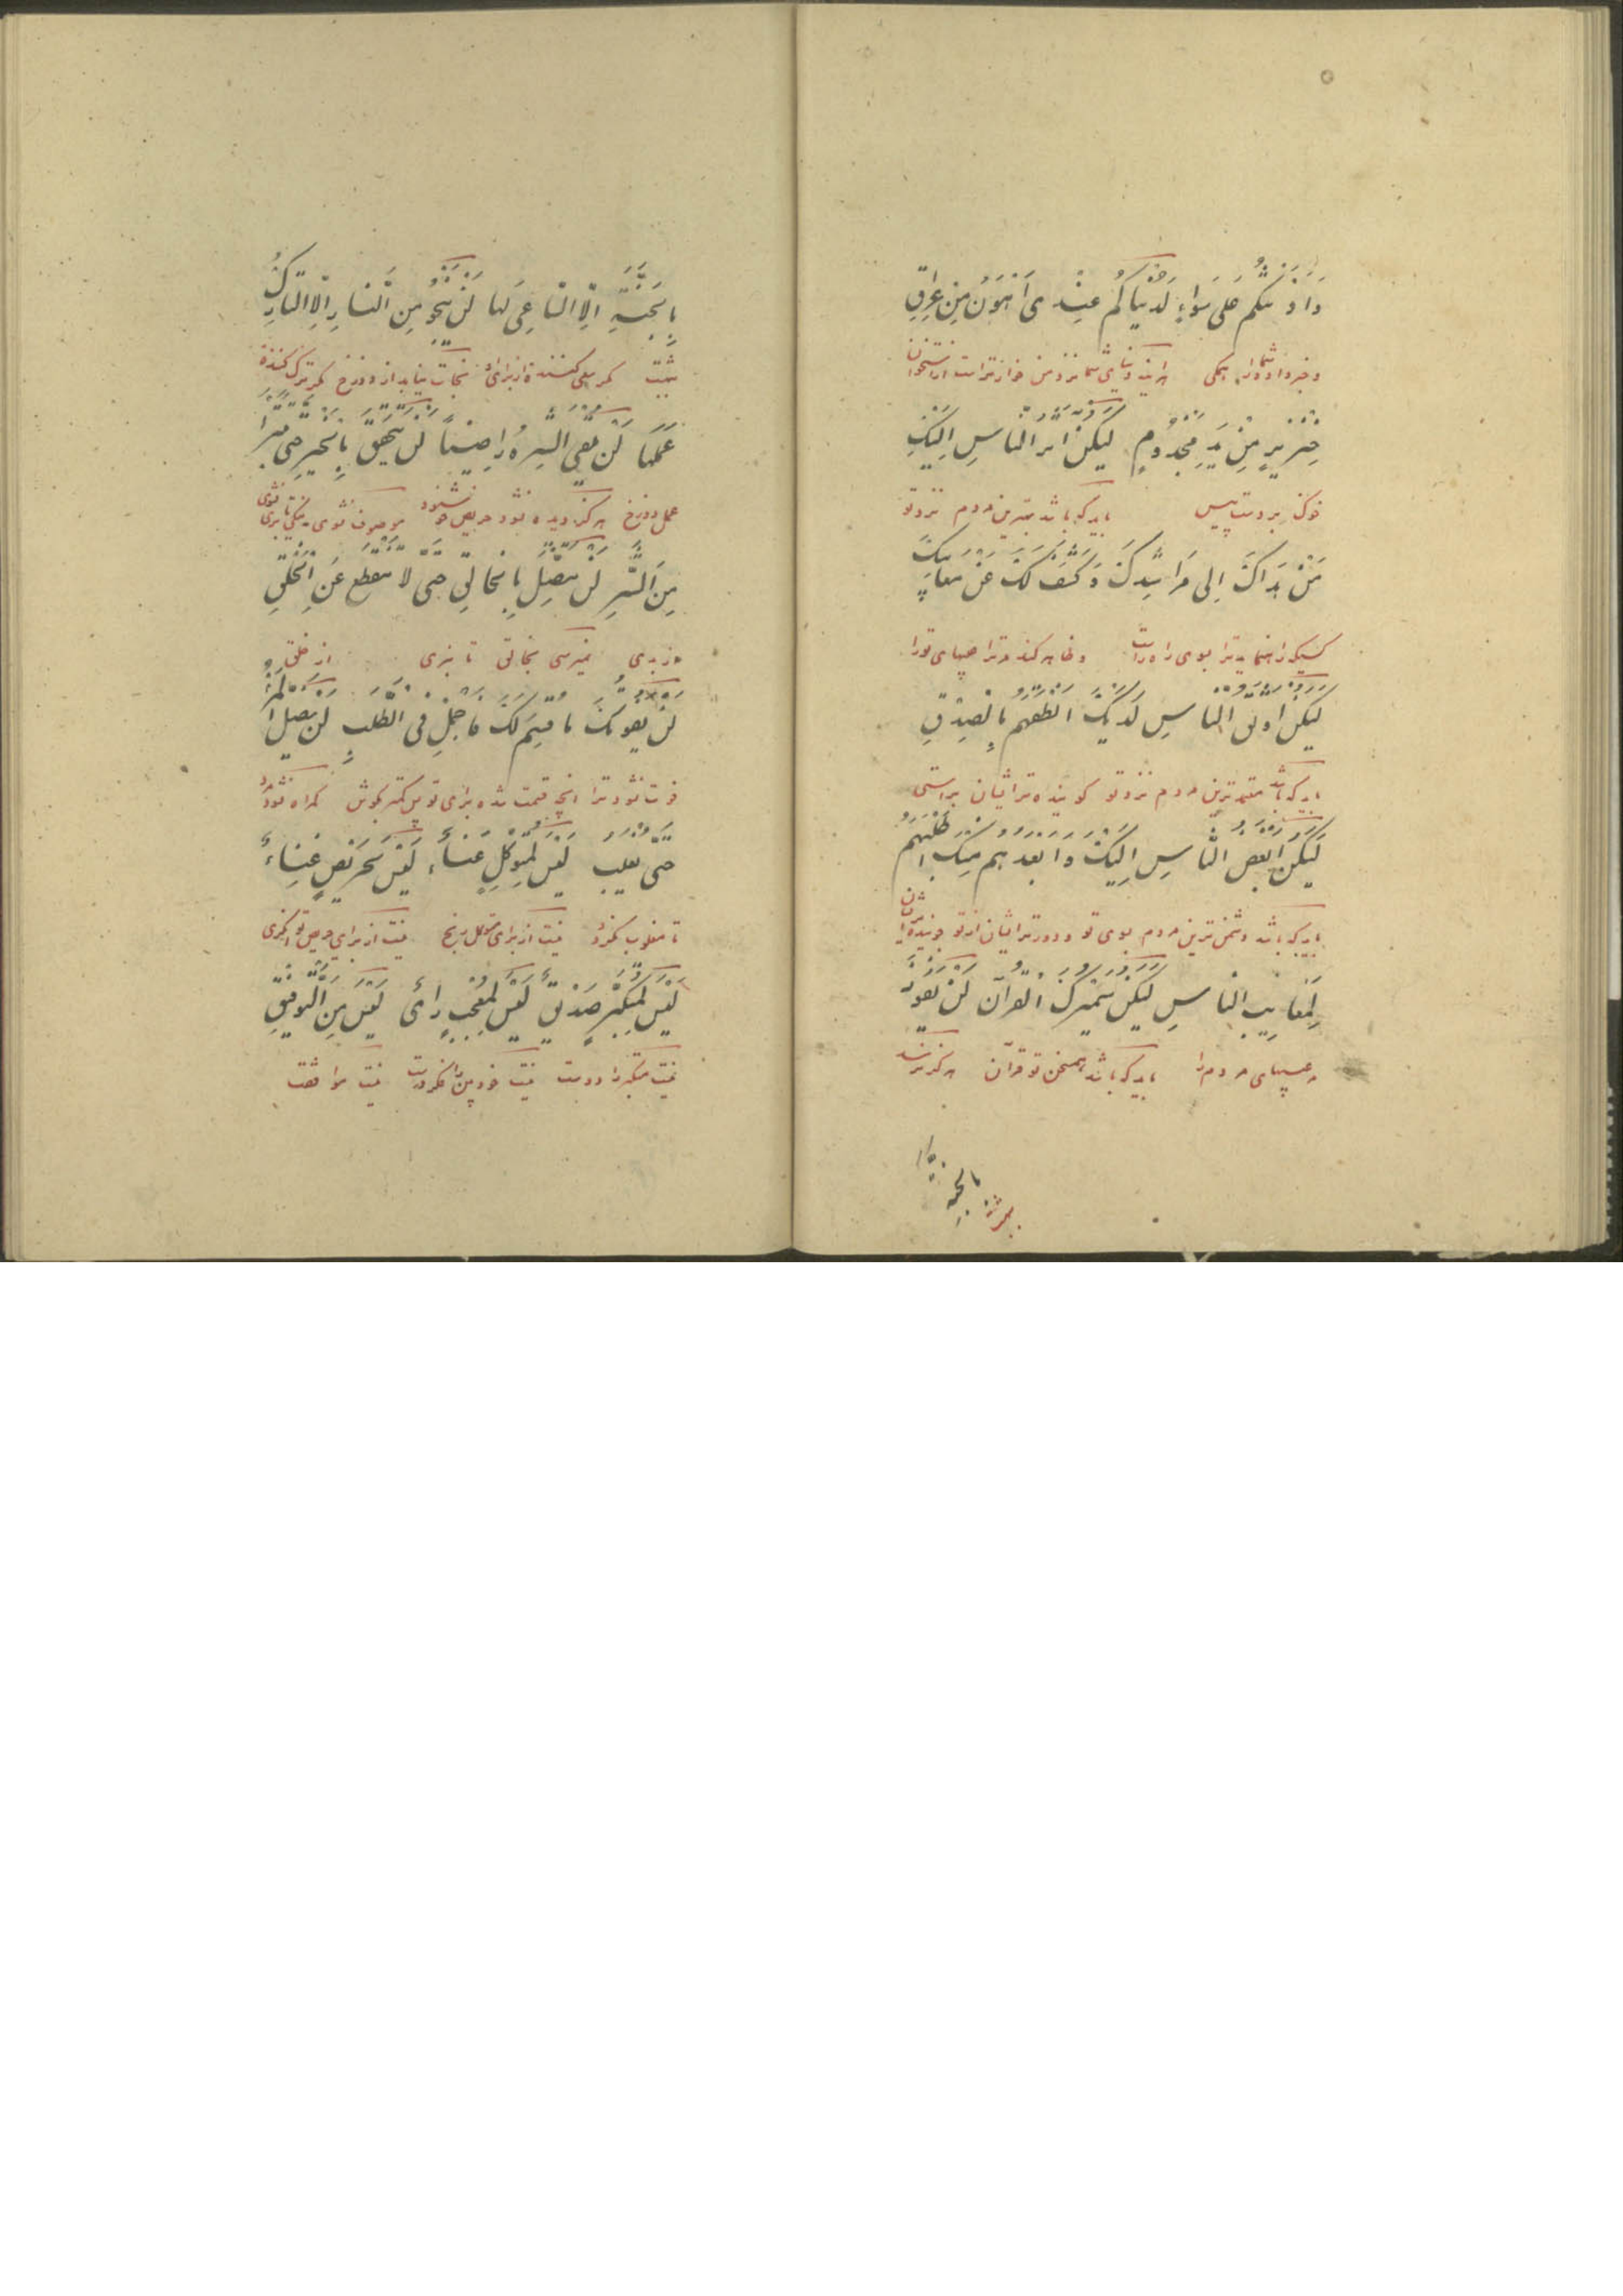 وَاذَنْتُكُم عَلی سَواءٍ لَدُنْیاکُم عِنْدی اَهْوَنُ مِنْ عِراقِ
وخبر دادم شمارا همکی هرآینه دنیای شما نزد من خوارتراست از استخوان
خِنْزیرٍ مِنْ یَدِ مَجْذُومٍ لِیَکُنْ ابرّ النّاسِ اِلَیْکَ
خوک بر دست پیس باید که باشد بهترین مردم نزد تو
مَنْ هَداکَ اِلی مَراشِدِکَ وَکَشَفَ لَکَ عَنْ مَعایِبِکَ
کسیکه راهنماید ترا بسوی راه راست وظاهر کند مر ترا عیبهای تورا
لِیَکُنْ اَوْثَقُ النّاسِ لَدَیْکَ اَنْطَقُهُم بِالصِّدْقِ
باید که باشد معتمدترین مردم نزد تو کوینده تر ایشان براستی
لِیَکُنْ اَبْغَضُ النّاسِ اِلَیْکَ وَاَبْعَدُهُم مِنْکَ اَطْلَبُهُم
باید که باشد دشمن ترین مردم بسوی تو ودورتر ایشان از تو جوینده تر ایشان
لِمَعایِبِ النّاسِ لِیَکُنْ سَمیرُکَ القُرآن لَنْ یَفُوزَ
مر عیبهای مردم را باید که باشد همسخن تو قرآن هرکز نرسد
بِالجَنَّةِ اِلَّا السّاعی لَها لَنْ یَنْجُوَ مِنَ النّارِ اِلَّا التّارِکُ
بهشت مکر سعی کننده از برای نجات نیابد از دوزخ مکر ترک کننده
عَمَلَها لَنْ یُلْقَی الشَّرِهُ راضِیاً لَنْ یَتَحَقَّقَ بِالخَیْرِ حَتّی یَتَبَرَّأَ
عمل دوزخ هرکز دیده نشود حریص خوشنود موصوف نشوی بنیکی تا بری نشوی
مِنَ الشَّرِ لَنْ یَتَّصِلَ بِالخالِقِ حَتّی لا یَنْقَطِعَ عَنِ الخَلْقِ
از بدی نمیرسی بخالق تا نبری از خلق
لَنْ یَفُوتَکَ ما قُسِمَ لَکَ فَاَجْمِلْ فی الطَّلَبِ لَنْ یَضِلَّ المَرْءُ
فوت نشود ترا آنچه قسمت شده برای تو پس کمتر بکوش کمراه نشود مرد
حَتّی یُغْلَبَ لَیْسَ لِمُتَوَکِّلٍ عَناءٌ لَیْسَ لِحَریصٍ غِناءٌ
تا مغلوب نکردد نیست از برای متوکل رنج نیست از برای حریص توانکری
لَیْسَ لِمُتَکَبِّرٍ صَدیقٌ لَیْسَ لِمُعْجِبٍ رَأیٌ لَیْسَ مِنَ التَّوْفیقِ
نیست متکبر را دوست نیست خودبین را فکر درست نیست موافقت
بالجنة الا
بهشت